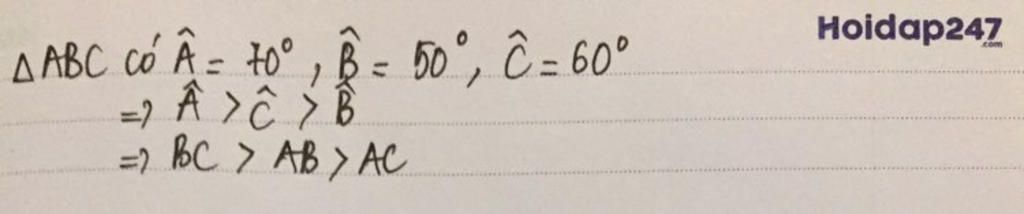 Hoidap247
.com
Δ ABC có Â = 70°, B̂ = 50°, Ĉ = 60°
=> Â > Ĉ > B̂
=> BC > AB > AC